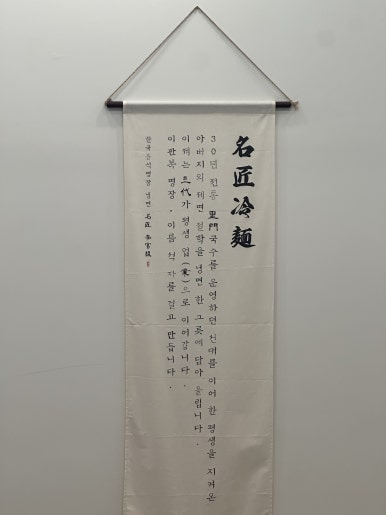 名匠冷麵
30년 전통 東門국수를 운영하던 선대를 이어 한 평생을 지켜온
아버지의 제면 철학을 냉면 한 그릇에 담아 올립니다.
이제는 三代가 평생 업(業)으로 이어갑니다.
이판복 명장. 이름 석 자를 걸고 만듭니다.
한국음식명장 냉면 名匠